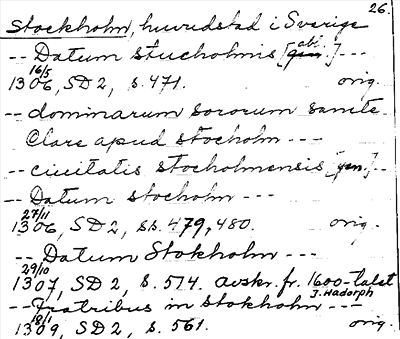 26.
Stockholm, huvudstad i Sverige
-- Datum stucholmis [gen. abl.] ---
16/5
1306, SD 2, s. 471. orig.
-- dominarum sororum sancte
Clare apud stocholm ---
-- ciuitatis stocholmensis [gen.] --
-- Datum stocholm ---
27/11
1306, SD 2, ss. 479, 480. orig.
-- Datum Stokholm ---
29/10
1307, SD 2, s. 514. avskr. fr. 1600-talet
J. Hadorph
-- Fratribus in stokholm ---
18/1
1309, SD 2, s. 561. orig.